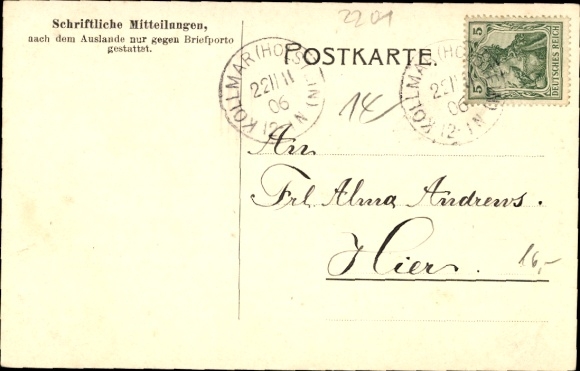 Schriftliche Mitteilungen,
nach dem Auslande nur gegen Briefporto
gestattet.
2201
POSTKARTE.
KOLLMAR (HOLSTEIN)
22 11
06
12-1 N
KOLLMAR (HO
22 11
06
12-1 N
5 5
DEUTSCHES REICH
14
An
Frl. Alma Andrews.
Hier.
16,-